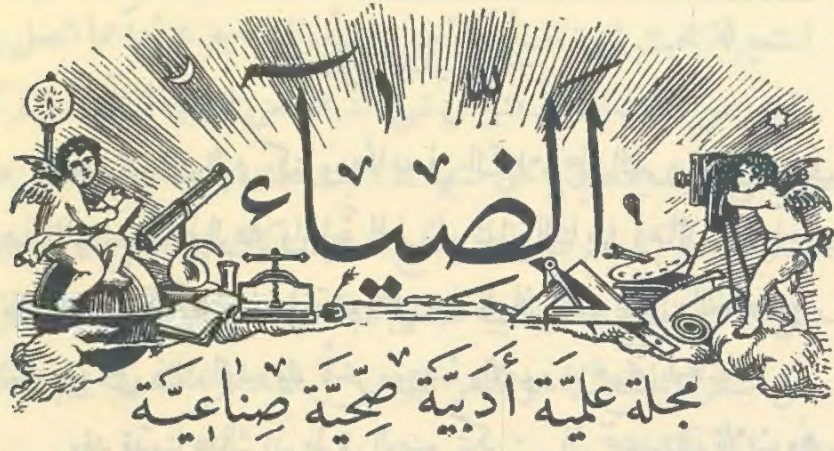 الضِّيَآء
مجلة علميَّة أَدَبيَّة صِحِّيَّة صِناعِيَّة